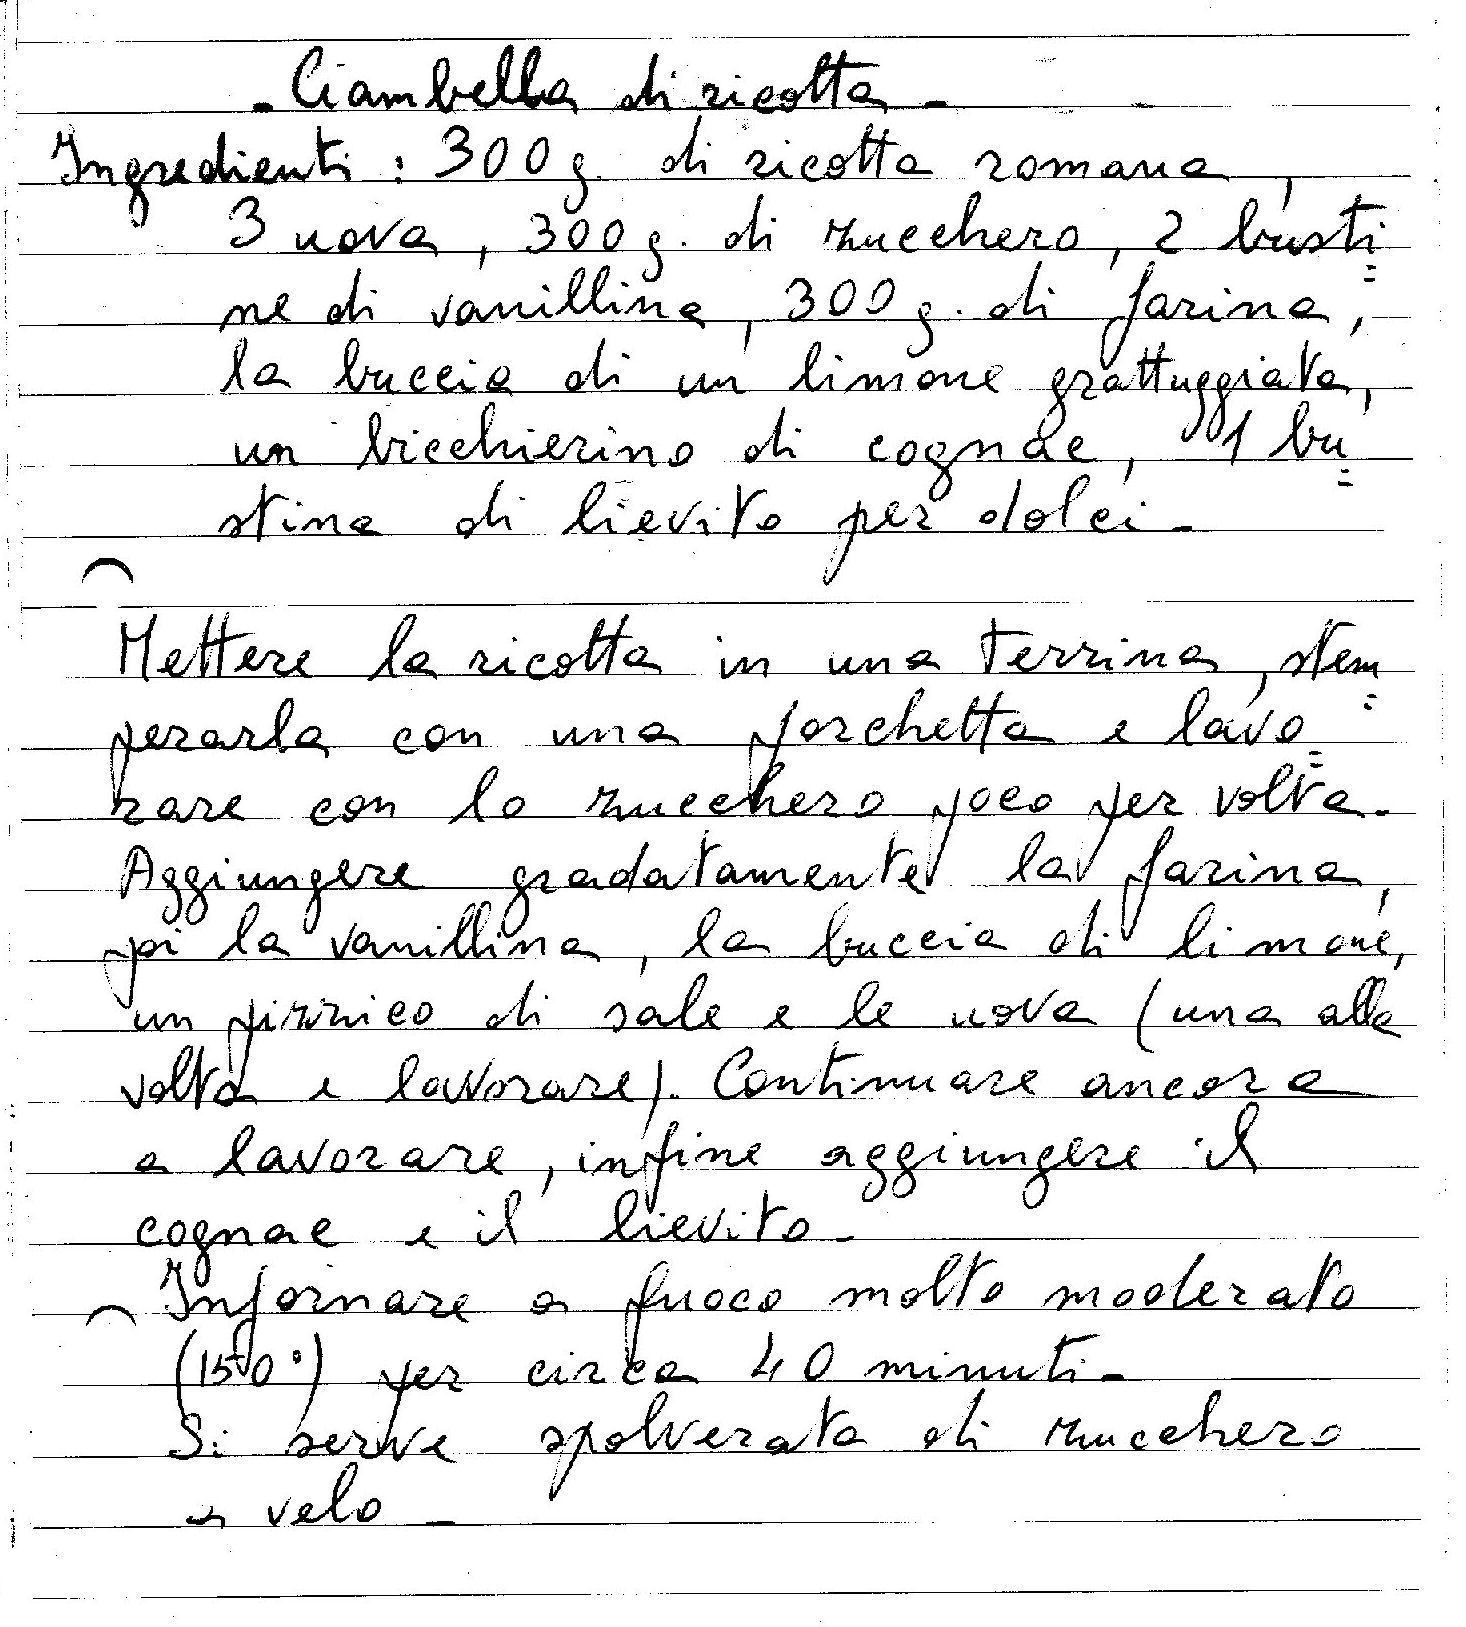 - Ciambella di ricotta -
Ingredienti : 300 g. di ricotta romana,
3 uova, 300 g. di zucchero, 2 busti=
ne di vanillina, 300 g. di farina,
la buccia di un limone grattuggiata,
un bicchierino di cognac, 1 bu=
stina di lievito per dolci -
Mettere la ricotta in una terrina, stem=
perarla con una forchetta e lavo=
rare con lo zucchero poco per volta -
Aggiungere gradatamente la farina,
poi la vanillina, la buccia di limone,
un pizzico di sale e le uova (una alla
volta e lavorare). Continuare ancora
a lavorare, infine aggiungere il
cognac e il lievito -
Infornare a fuoco molto moderato
(150°) per circa 40 minuti -
Si serve spolverata di zucchero
a velo -